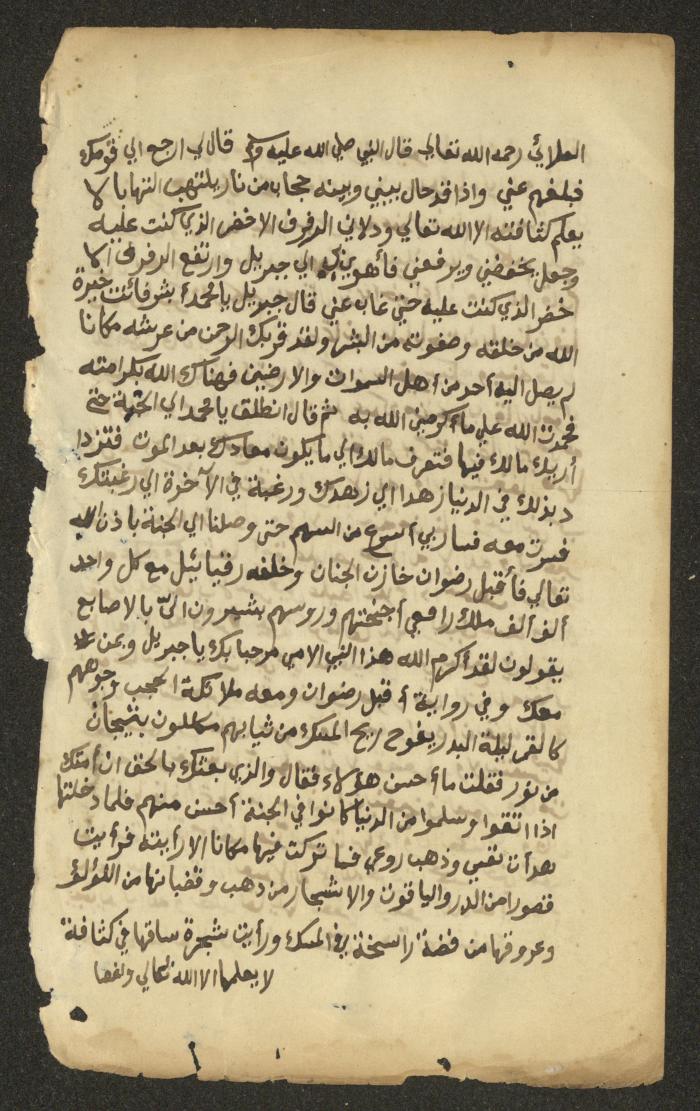 العلائي رحمه الله تعالي قال النبي صلي الله عليه وسلم قال لي ارجع الي قومك
فبلغهم عني واذا قد حال بيني وبينه حجاب من نار يلتهب التهابا لا
يعلم كثافته الا الله تعالي ودلاني الرفرف الاخضر الذي كنت عليه
وجعل يخفضني ويرفعني فأهوي بي الي جبريل وارتفع الرفرف الا
خضر الذي كنت عليه حتي غاب عني قال جبريل يا محمد أبشر فأنت خيرة
الله من خلقه وصفوته من البشر ولقد قربك الرحمن من عرشه مكانا
لم يصل اليه أحد من أهل السموات والارضين فهناك الله بكرامته
فحمدت الله علي ما أكرمني الله به ثم قال انطلق يا محمد الي الجنة حتي
أريك مالك فيها فتعرف مالك الي ما يكون معادك بعد الموت فتزدا
د بذلك في الدنيا زهدا الي زهدك ورغبة في الآخرة الي رغبتك
فسرت معه فسار بي أسرع من السهم حتي وصلنا الي الجنة باذن الله
تعالي فأقبل رضوان خازن الجنان وخلفه رقيائيل مع كل واحد
ألف ألف ملك رافعي أجنحتهم وروسهم يشيرون اليّ بالاصابع
يقولون لقد أكرم الله هذا النبي الامي مرحبا بك يا جبريل وبمن
معك وفي رواية أقبل رضوان ومعه ملائكة الحجب وجوههم
كالقمر ليلة البدر يفوح ريح المسك من ثيابهم مكللون بتيجان
من نور فقلت ما أحسن هؤلاء فقال والذي بعثك بالحق ان أمتك
اذا اتقوا وسلموا من الدنيا كانوا في الجنة أحسن منهم فلما دخلتها
هدأت نفسي وذهب روعي فما تركت فيها مكانا الا رأيته فرأيت
قصورا من الدر والياقوت والاشجار من ذهب وقضبانها من اللؤلؤ
وعروقها من فضة راسخة في المسك ورأيت شجرة ساقها في كثافة
لا يعلمها الا الله تعالي